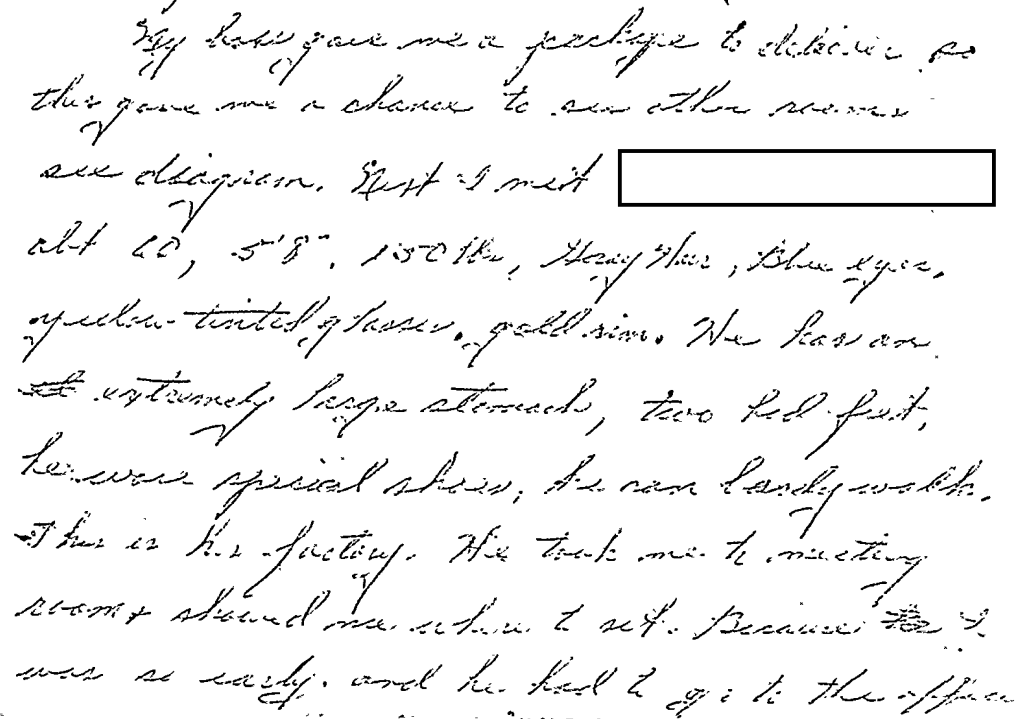 My boss gave me a package to deliver so
this gave me a chance to see other rooms
see diagram. Next I met
abt 60, 5'8", 150 lbs, Gray Hair, Blue eyes,
yellow tinted glasses, gold rim. He has an
extremely large stomach, two bad feet,
he wore special shoes, he can hardly walk.
This is his factory. He took me to meeting
room & showed me where to sit. Because I
was so early. and he had to go to the office